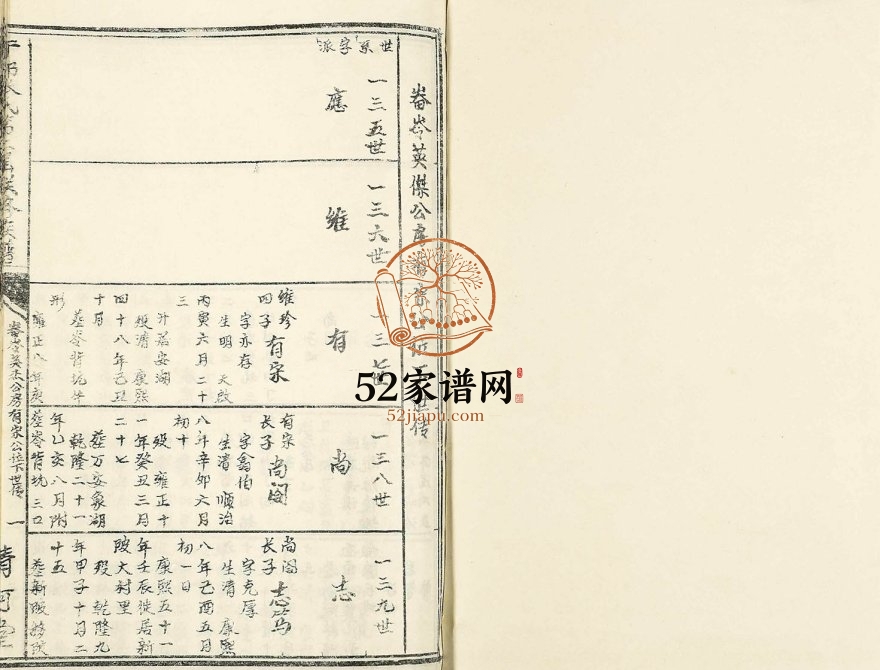 畨岺英傑公房有宗公位下世传
世系字派
一三五世
應
一三六世
維
一三七世
有
维珍
四子 有宗
字亦存
生明 天啟
丙寅六月二十
三
殁清 康熙
四十八年己丑
十月
葬岺背坑牛
形
雍正八年庚
一三八世
尚
有宗
长子 尚阁
字鑫伯
生清 順治
八年辛卯六月
初十
殁 雍正十
一年癸丑三月
二十七
葬万安象湖
乾隆二十一
年乙亥八月附
葬岺背坑三口
一三九世
志
尚阁
长子
字克厚
生清 康熙
八年己酉五月
初一日
康熙五十一
年壬辰徙居新
陂大村里
殁 乾隆九
年甲子十月二
十五
葬新陂
畨岺英杰公房有宗公位下世传
一
清河堂
52家谱网
52jiapu.com